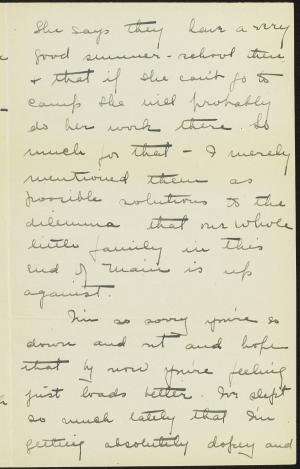 She says they have a very
good summer-school there
& that if she can't go to
camp she will probably
do her work there. So
much for that - I merely
mentioned them as
possible solutions to the
dilemma that our whole
little family in this
end of Main is up
against.
I'm so sorry you're so
down and out and hope
that by now you're feeling
just loads better. I've slept
so much lately that I'm
getting absolutely dopey and